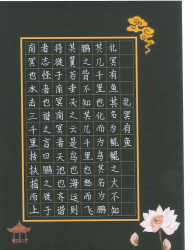 北冥有鱼
北冥有鱼其名为鲲鲲之大不知
其几千里也化而为鸟其名为鹏
鹏之背不知其几千里也怒而飞
其翼若垂天之云是鸟也海运则
将徙于南冥南冥者天池也齐谐
者志怪者也谐之言曰鹏之徙于
南冥也水击三千里抟扶摇而上